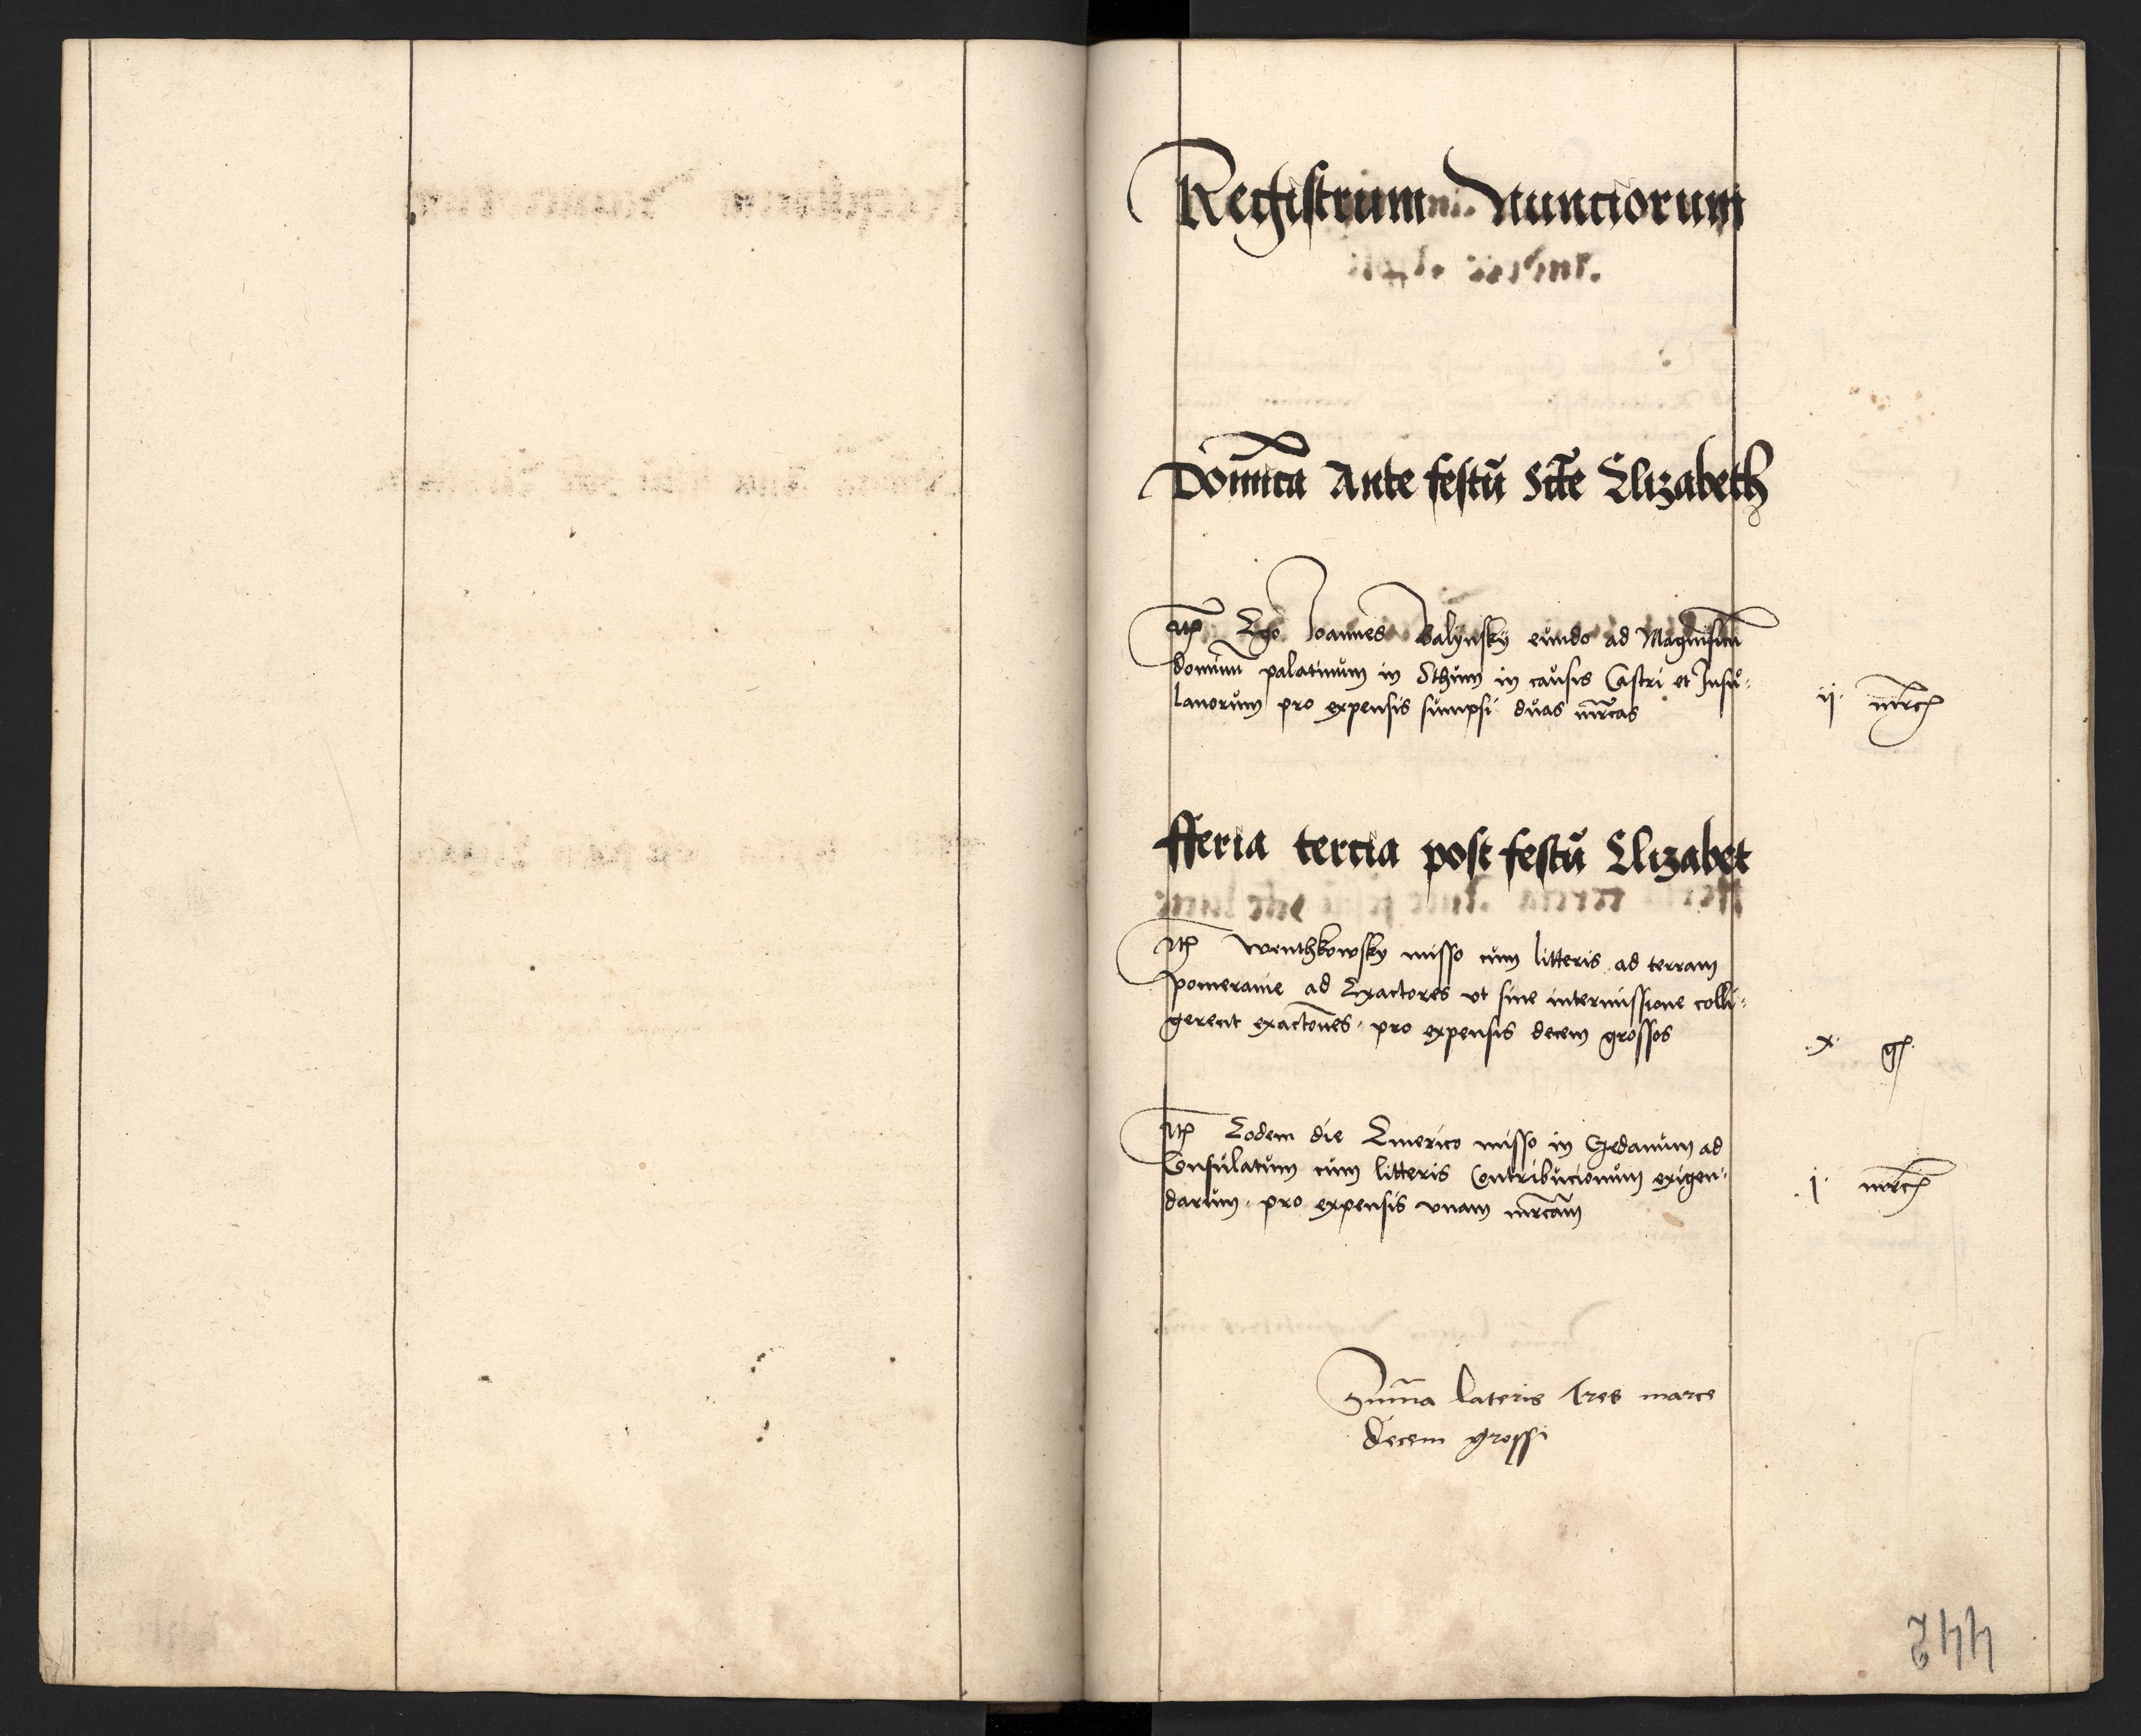 Registrum Nunciorum
Domīca Ante festū Scte Elizabeth
Itē Ego Joannes Balynsky eundo ad Magnificū
dominū palatinum in Sthum in causis Castri et Insu-
lanorum pro expensis sumpsi duas mrcas
ij mrc
fferia tercia post festū Elizabet
Itē Wenthkowsky misso cum litteris ad terram
pomeranie ad Exactores vt sine intermissione colli-
gerent exactiōes pro expensis decem grossos
x g
Itē Eodem die Emerico misso in Gedanum ad
Consulatum cum litteris Contribucionum exigen-
darum pro expensis vnam mrcam
j mrc
Summa lateris Tres marce
decem grossi
442